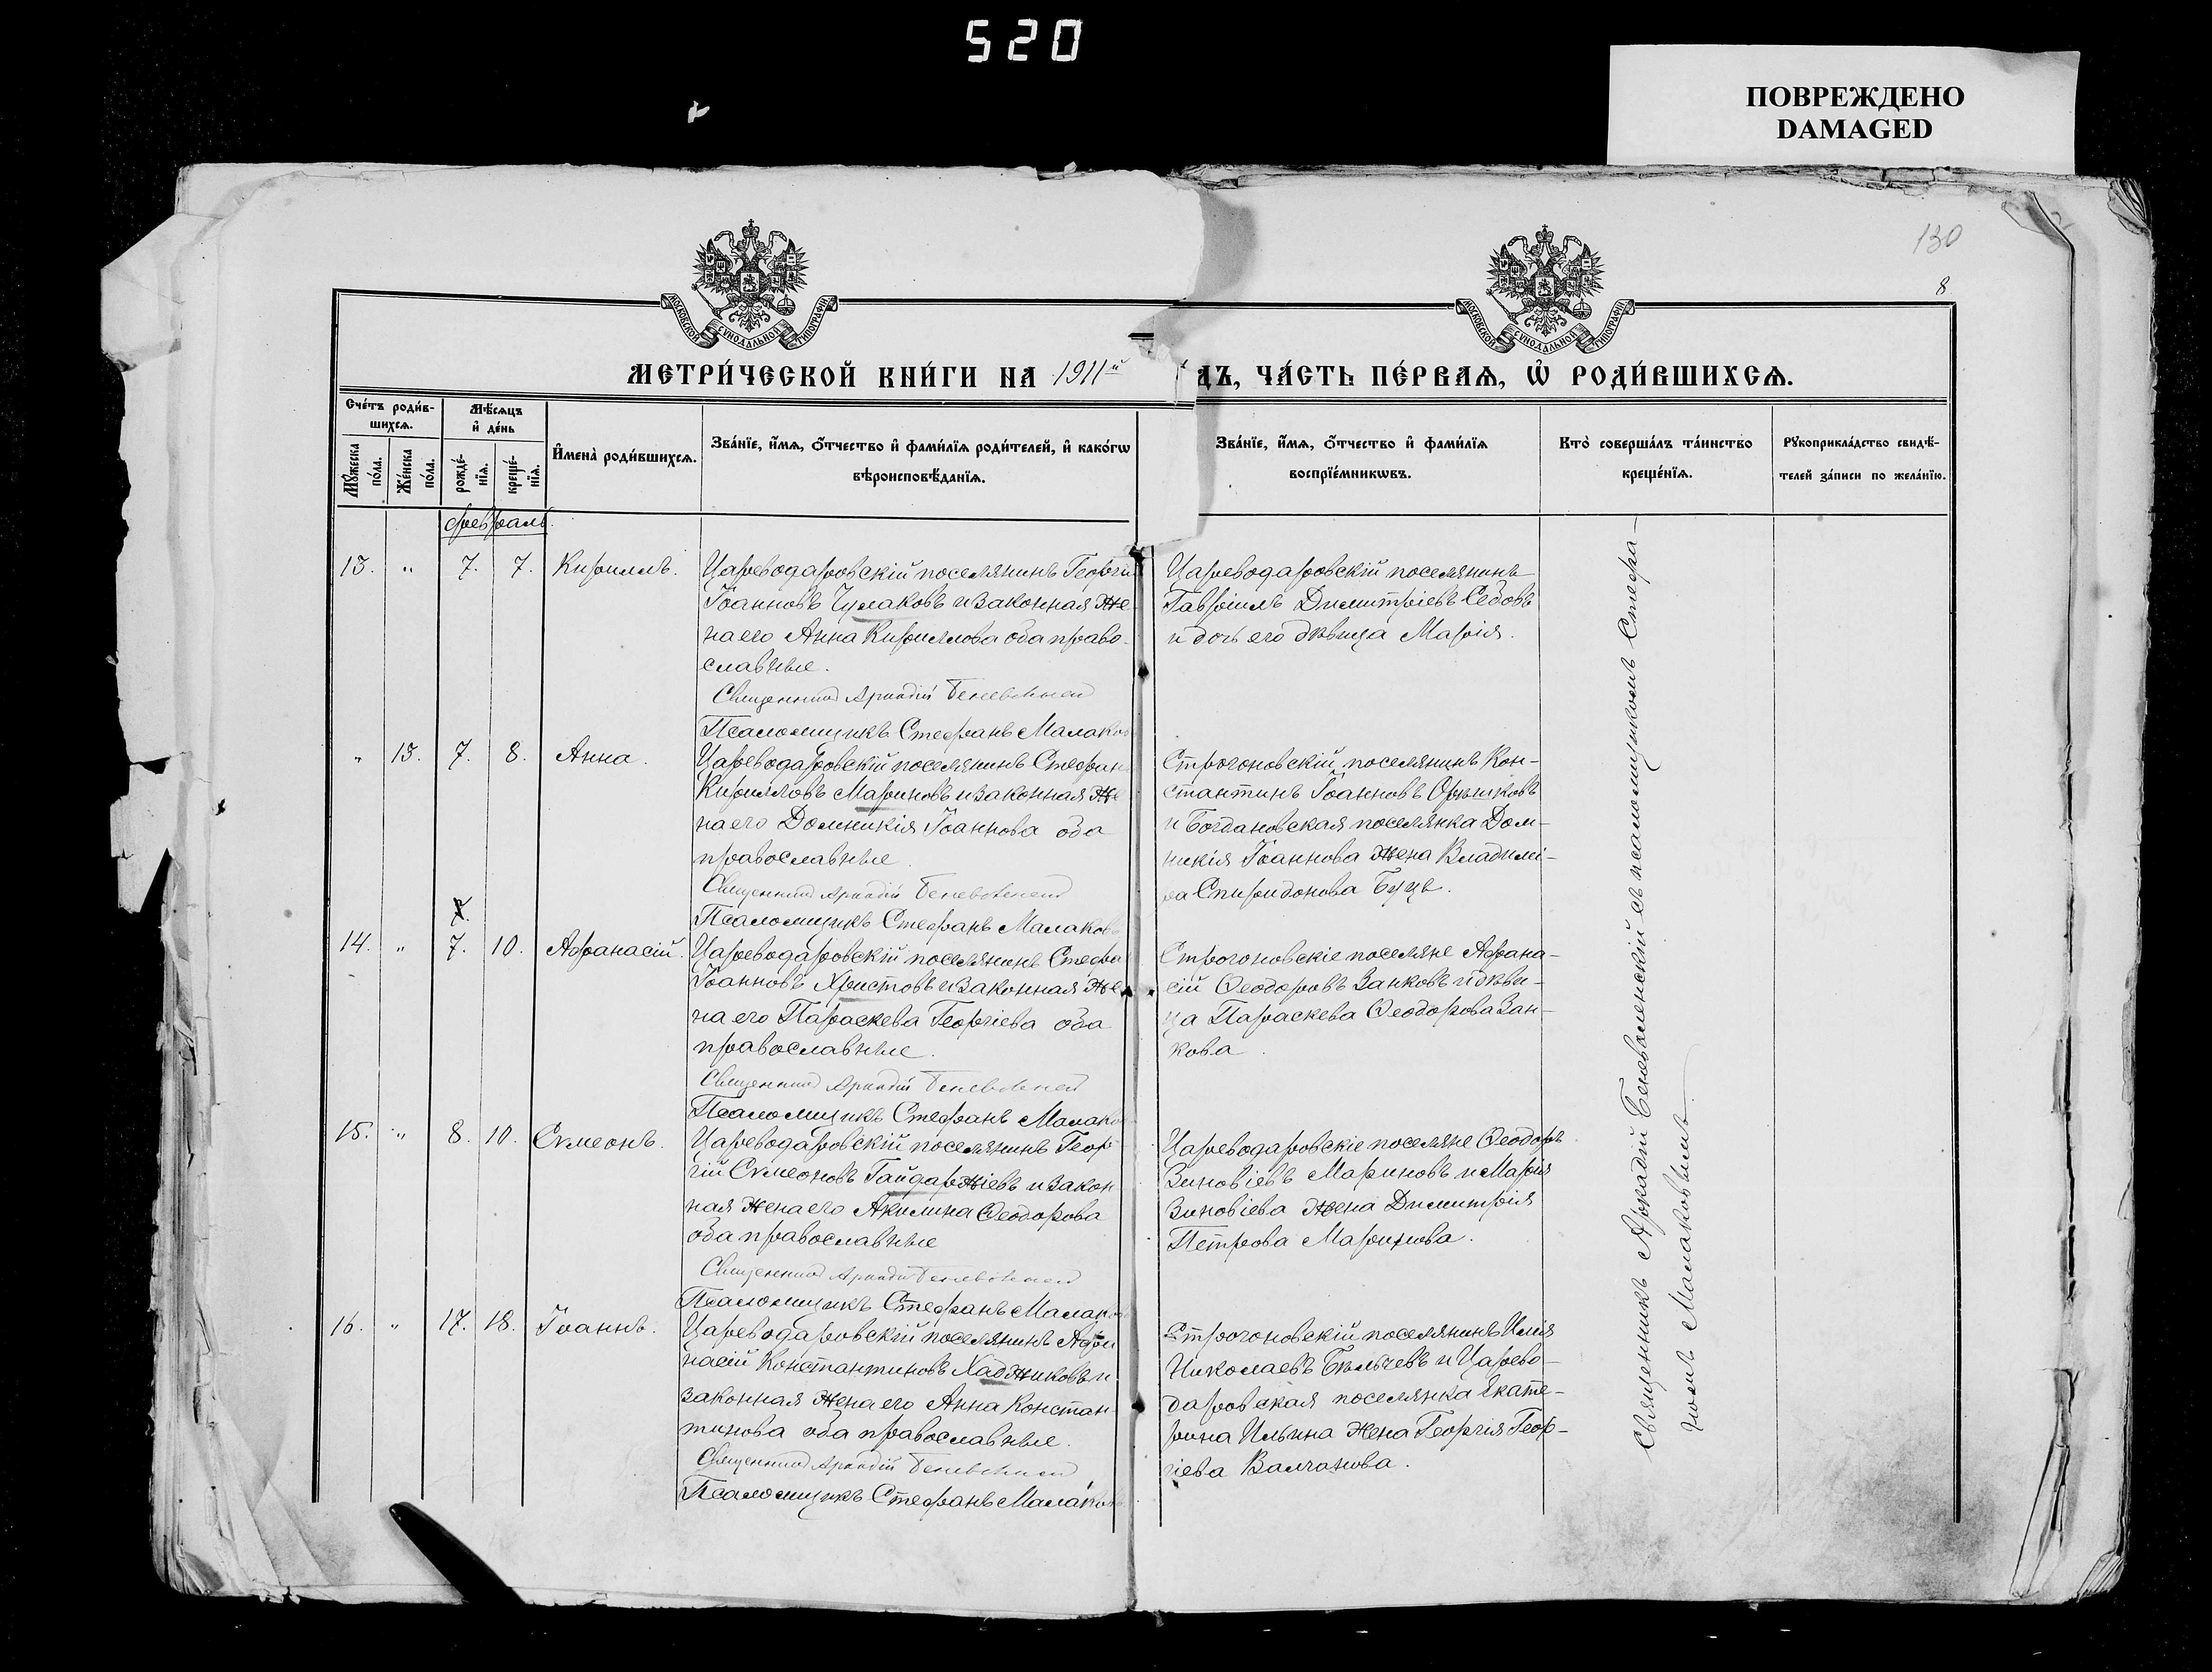 520
ПОВРЕЖДЕНО
DAMAGED
130
8
МОСКОВСКОЙ СѴНОДАЛЬНОЙ ТИПОГРАФІИ
МОСКОВСКОЙ СѴНОДАЛЬНОЙ ТИПОГРАФІИ
МЕТРИ́ЧЕСКОЙ КНИ́ГИ НА 1911й
ДЪ, ЧА́СТЬ ПЕ́РВАѦ, Ѡ҆ РОДИ́ВШИХСѦ.
Сче́тъ роди́в-
шихсѧ.
Мѣ́сѧцъ
и҆ де́нь
Мꙋ́жеска
по́ла.
Же́нска
по́ла.
рожде́-
нїѧ.
креще́-
нїѧ.
И҆мена̀ роди́вшихсѧ.
Зва́нїе, и҆́мѧ, ѻ҆́тчество и҆ фами́лїѧ роди́телей, и҆ како́гѡ
вѣроисповѣ́данїѧ.
Зва́нїе, и҆́мѧ, ѻ҆́тчество и҆ фами́лїѧ
воспрїе́мникѡвъ.
Кто̀ соверша́лъ та́инство
креще́нїѧ.
Рꙋкоприкла́дство свидѣ́-
телей за́писи по жела́нїю.
февраль
13. " 7. 7. Кириллъ.
Цареводаровскій поселянинъ Георгій
Іоанновъ Чумаковъ и законная же
на его Анна Кириллова оба право-
славные.
Священник Аркадій Беневоленский
Псаломщикъ Стефанъ Малаков
Цареводаровскій поселянинъ
Гавріилъ Димитріевъ Седовъ
и дочь его дѣвица Марія.
" 13. 7. 8. Анна.
Цареводаровскій поселянинъ Стефан
Кирилловъ Мариновъ и законная же
на его Домникія Іоаннова оба
православные.
Священник Аркадій Беневоленский
Псаломщикъ Стефанъ Малаков
Строгоновскій поселянинъ Кон-
стантинъ Іоанновъ Орѣшковъ
и Богдановская поселянка Дом-
никія Іоаннова жена Владимі-
ра Спиридонова Буцъ.
14. " 7. 10. Афанасій.
Цареводаровскій поселянинъ Стефа
Іоанновъ Христовъ и законная же
на его Параскева Георгіева оба
православные.
Священник Аркадій Беневоленский
Псаломщикъ Стефанъ Малаков
Строгоновскіе поселяне Афана-
сій Ѳеодоровъ Занковъ и дѣви-
ца Параскева Ѳеодорова Зан-
кова.
15. " 8. 10. Сѵмеонъ.
Цареводаровскій поселянинъ Геор-
гій Сѵмеоновъ Гайдаржіевъ и закон-
ная жена его Акилина Ѳеодорова
оба православные
Священник Аркадій Беневоленский
Псаломщикъ Стефанъ Малаков
Цареводаровскіе поселяне Ѳеодоръ
Зиновіевъ Мариновъ и Марія
Зиновіева жена Димитрія
Петрова Маринова.
16. " 17. 18. Іоаннъ.
Цареводаровскій поселянинъ Афа
насій Константиновъ Хаджиковъ и
законная жена его Анна Констан-
тинова оба православные.
Священник Аркадій Беневоленский
Псаломщикъ Стефанъ Малаков
Строгоновскій поселянинъ Илія
Николаевъ Бѣльчевъ и Царево-
даровская поселянка Екате-
рина Ильина жена Георгія Геор-
гіева Валчанова.
Священникъ Аркадій Беневоленскій съ псаломщикомъ Стефа-
номъ Малаковымъ.